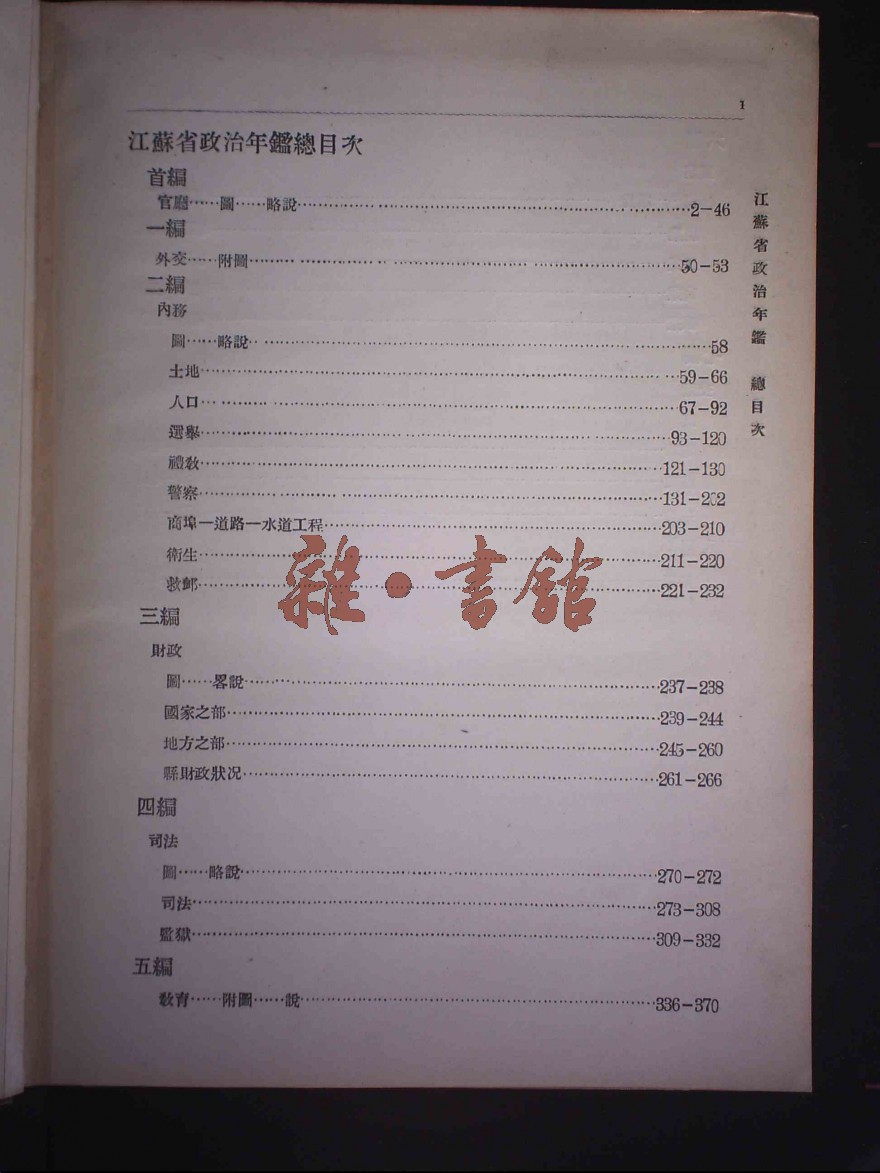 1
江蘇省政治年鑑總目次
首編
官廳……圖……略說……2-46
一編
外交……附圖……50-53
二編
內務
圖……略說……58
土地……59-66
人口……67-92
選舉……93-120
禮敎……121-130
警察……131-202
商埠—道路—水道工程……203-210
衛生……211-220
救卹……221-232
三編
財政
圖……畧說……237-238
國家之部……239-244
地方之部……245-260
縣財政狀况……261-266
四編
司法
圖……略說……270-272
司法……273-308
監獄……309-332
五編
敎育……附圖……說……336-370
江蘇省政治年鑑 總目次
雜·書館